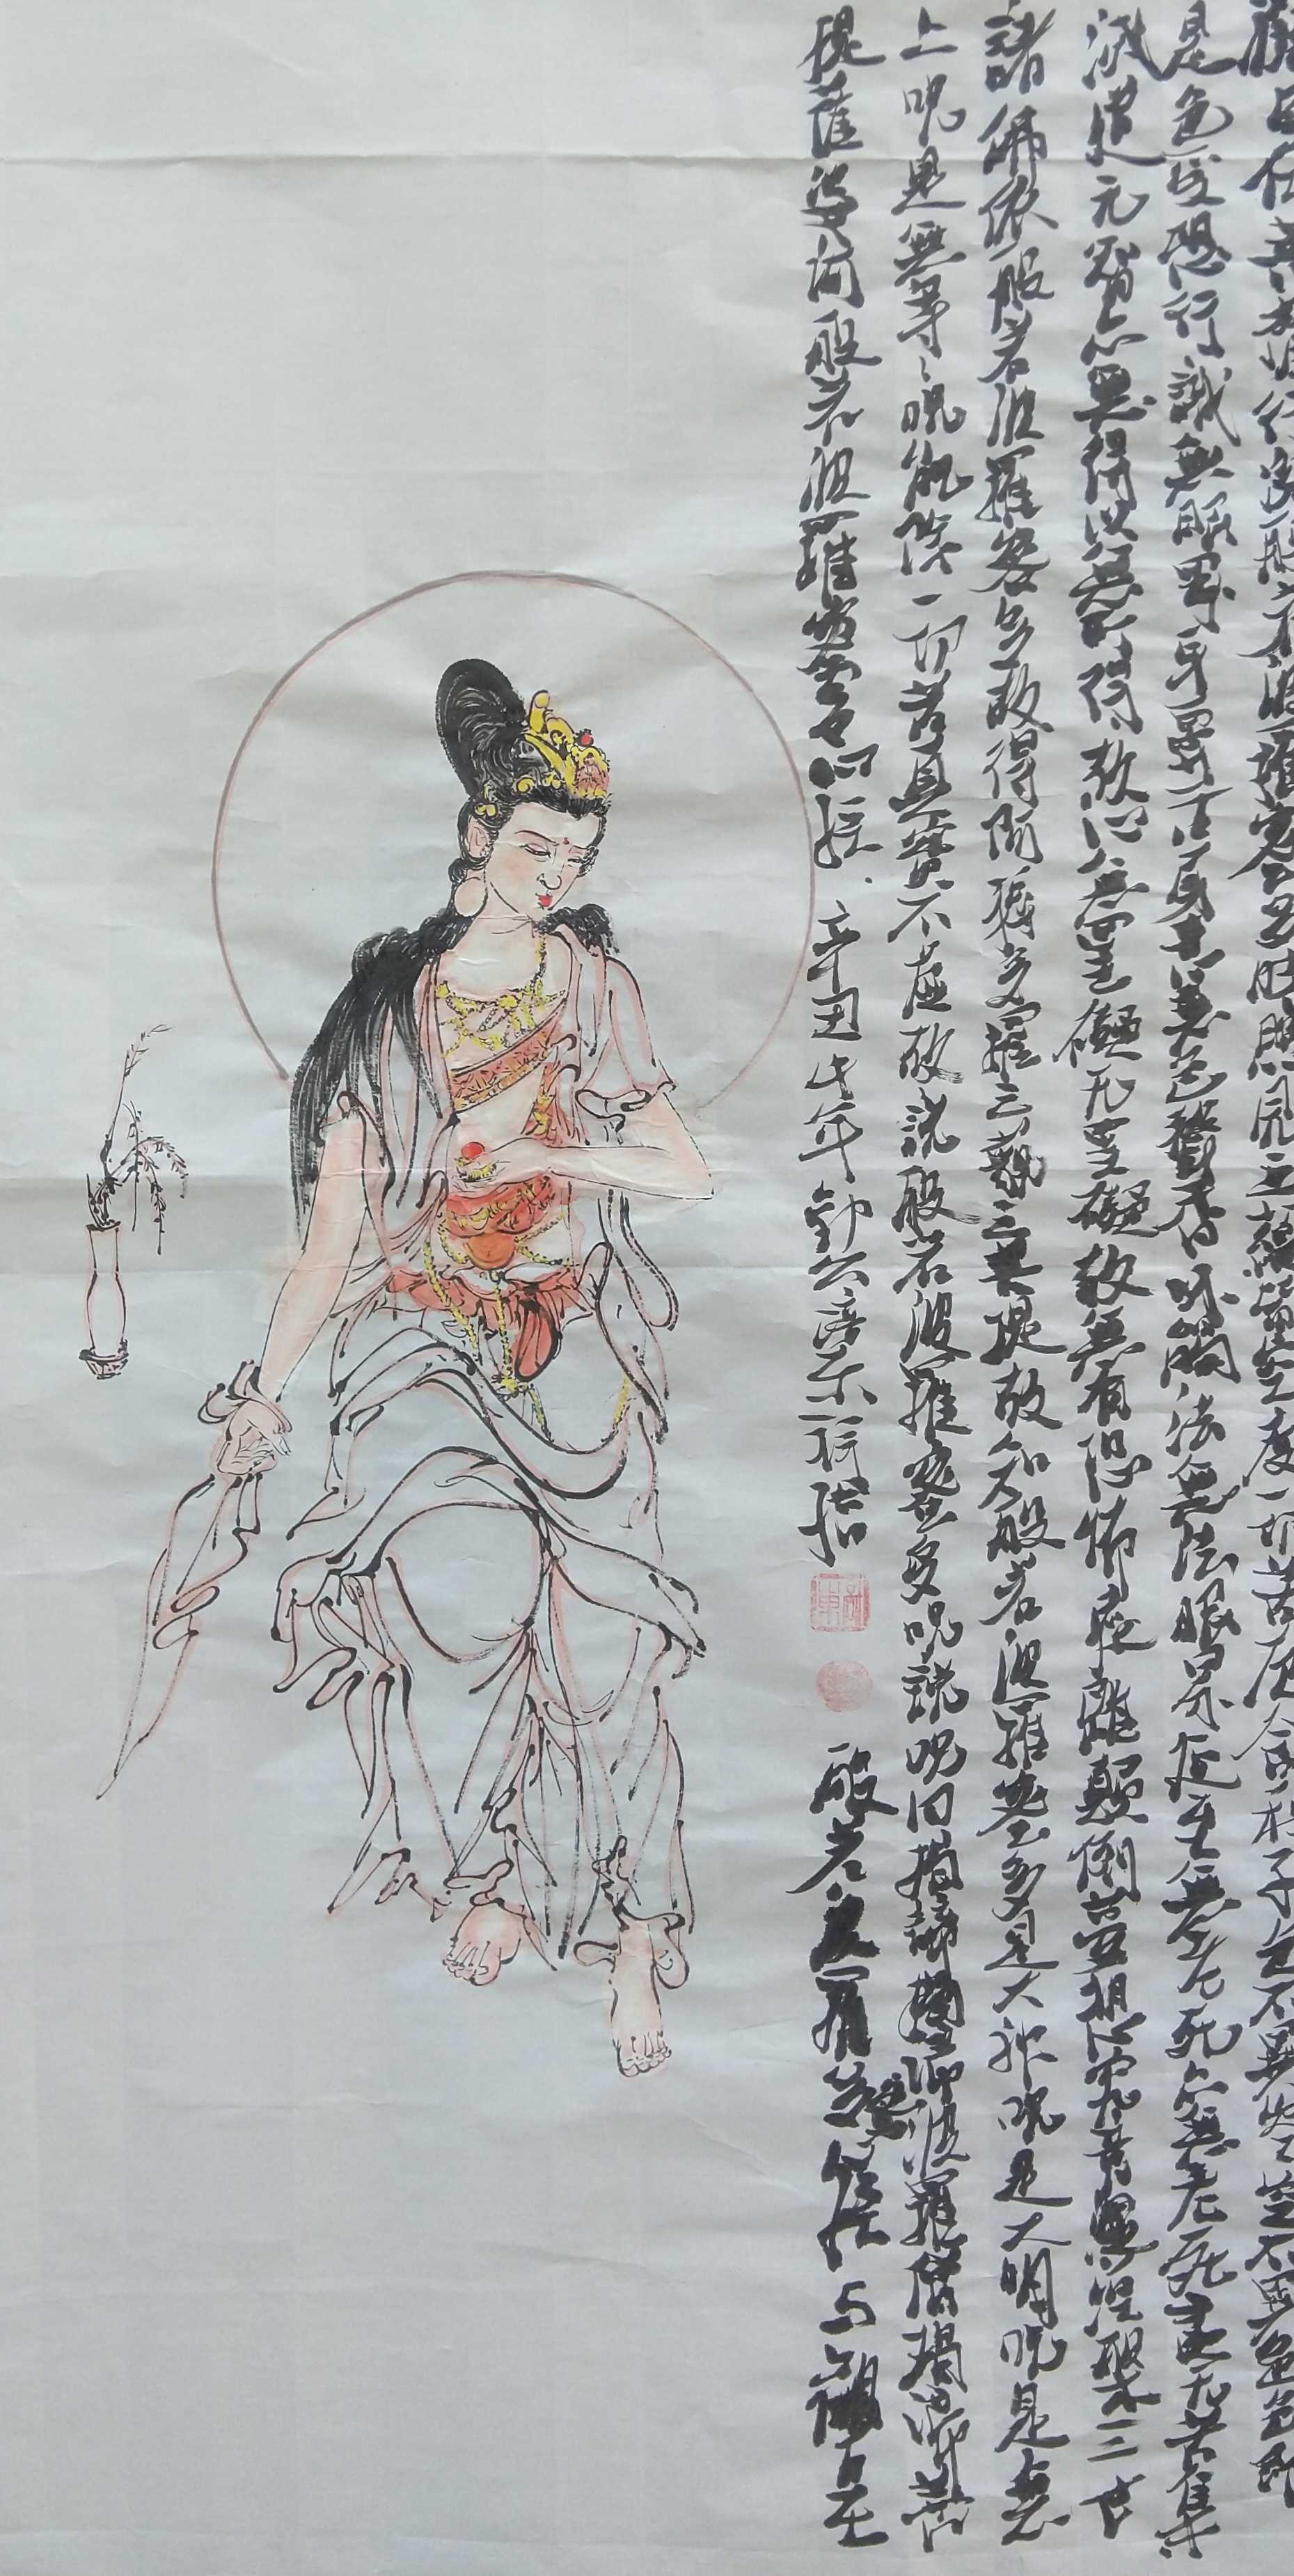 觀自在菩薩行深般若波羅密多時照見五蘊皆空度一切苦厄舍利子色不異空空不異色色即
是色受想行識無眼耳鼻舌身意無色聲香味觸法無法眼界乃至無老死亦無老死盡无苦集
滅道无智亦無得以無所得故心無罣礙无罣礙故無有恐怖遠離顛倒夢想心究竟涅槃三世
諸佛依般若波羅密多故得阿耨多羅三藐三菩提故知般若波羅密多是大神咒是大明咒是無
上咒是無等〻咒能除一切苦真實不虛故説般若波羅密多咒説咒曰揭諦揭諦波羅僧揭諦菩
提薩婆訶般若波羅密多心經 辛丑年
般若波羅密 与觀自在